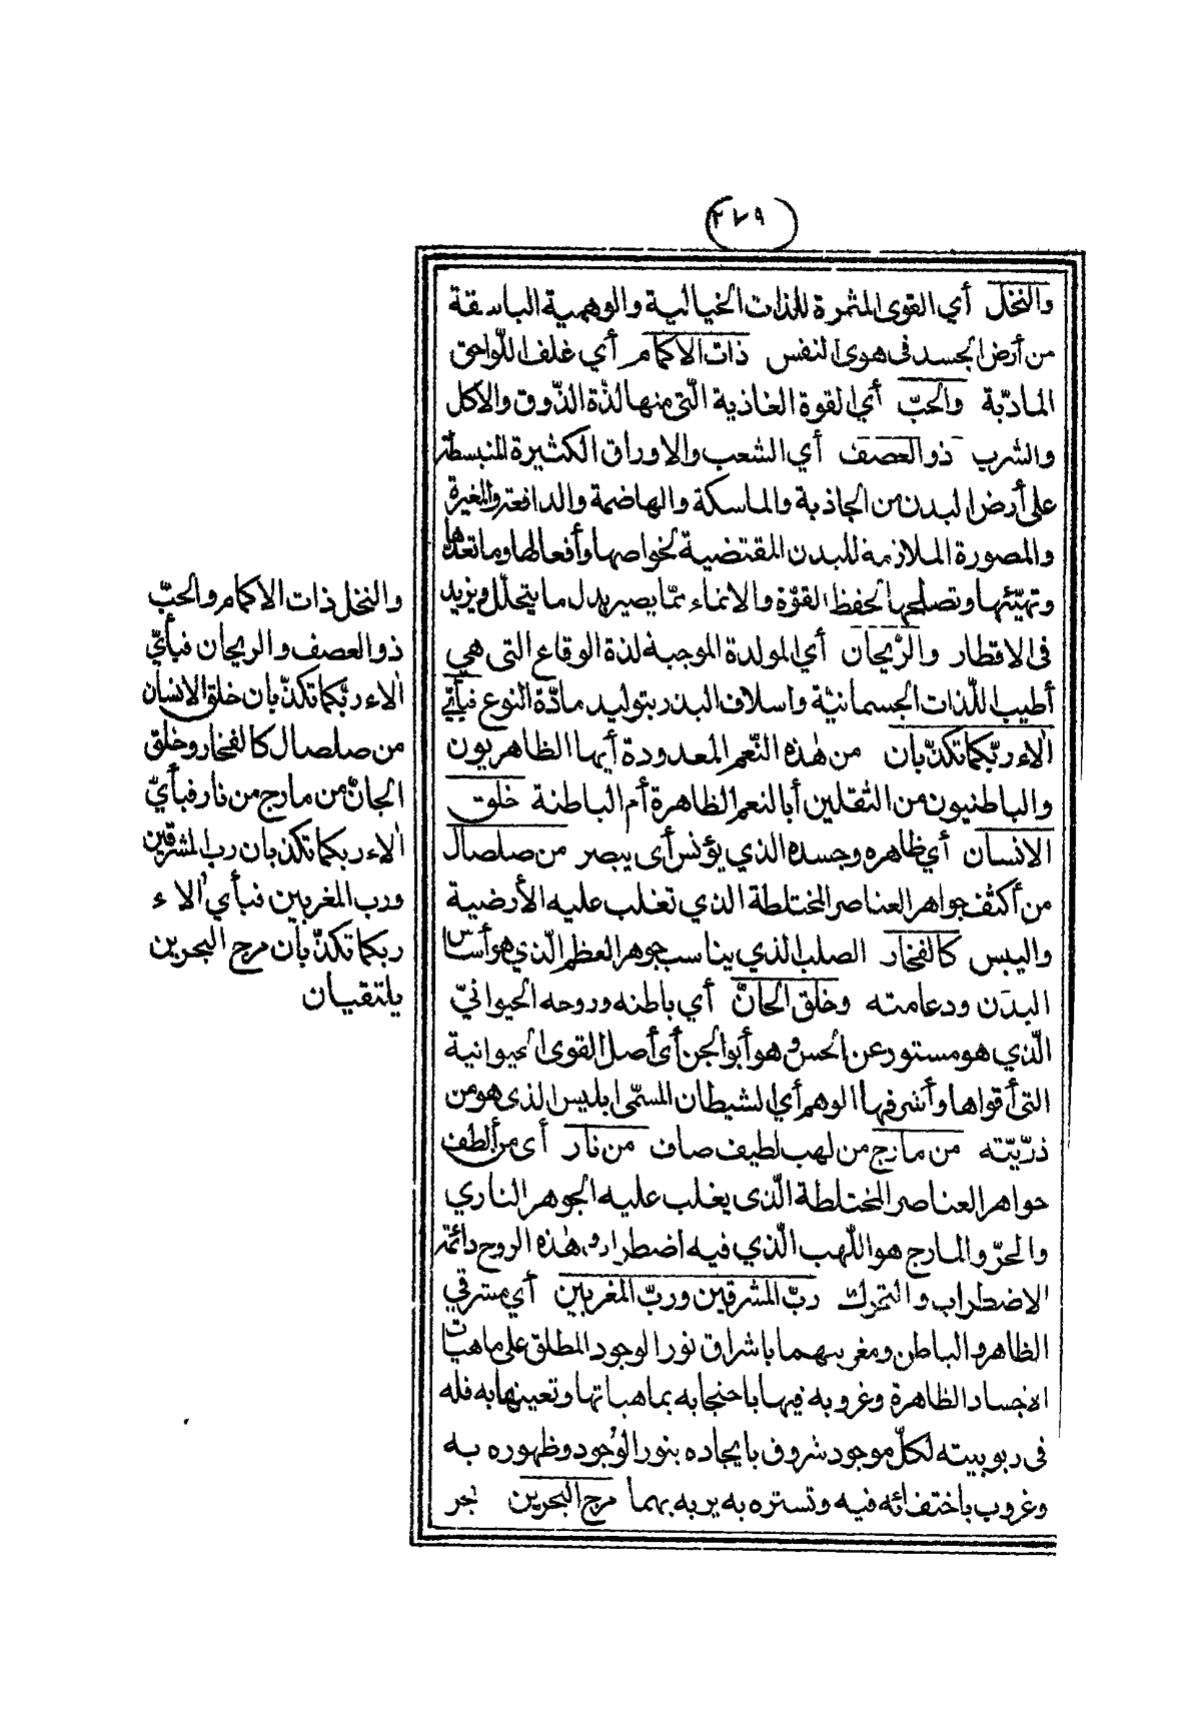 ٢٧٩
والنخل أي القوى المثمرة للذات الخيالية والوهمية الباسقة
من أرض الجسد فى هوى النفس ذات الاكمام أي غلف اللواحق
المادّية والحبّ أي القوة الغاذية الّتى منها لذّة الذّوق والاكل
والشرب ذو العصف أي الشعب والاوراق الكثيرة المنبسطة
على أرض البدن من الجاذبة والماسكة والهاضمة والدافعة والمغيرة
والمصورة الملازمة للبدن المقتضية لخواصها وأفعالها وما تعدها
وتهيّئها وتصلحها لحفظ القوّة والانماء ممّا يصير بدل ما يتحلّل ويزيد
فى الاقطار والرّيحان أي المولدة الموجبة لذة الوقاع التى هي
أطيب اللّذات الجسمانيّة واسلاف البذر بتوليد مادّة النوع فبأيّ
اٰلاء ربّكما تكذّبان من هٰذه النّعم المعدودة أيها الظاهريون
والباطنيون من الثقلين أبالنعم الظاهرة أم الباطنة خلق
الانسان أي ظاهره وجسده الذي يؤنس أى يبصر من صلصال
من أكثف جواهر العناصر المختلطة الذي تغلب عليه الأرضية
واليبس كالفخار الصلب الذي يناسب جوهر العظم الّذي هو أساس
البدَن ودعامته وخلق الجانّ أي باطنه وروحه الحيوانيّ
الّذي هو مستور عن الحس وهو أبو الجن أى أصل القوى الحيوانية
التى أقواها وأشرفها الوهم أي الشيطان المسمّى ابليس الذى هو من
ذرّيّته من مارج من لهب لطيف صاف من نار أى من ألطف
جواهر العناصر المختلطة الّذى يغلب عليه الجوهر الناري
والحرّ والمارج هو اللّهب الّذي فيه اضطراب وهٰذه الروح دائمة
الاضطراب والتحرك ربّ المشرقين وربّ المغربين أي مشرقي
الظاهر والباطن ومغربيهما باشراق نور الوجود المطلق على ماهيات
الاجساد الظاهرة وغروبه فيها باحتجابه بماهياتها وتعينها به فله
فى ربوبيته لكلّ موجود شروق بايجاده بنور الوُجود وظهوره به
وغروب باختفائه فيه وتستره به يربه بهما مرج البحرين بحر
والنخل ذات الاكمام والحبّ
ذو العصف والريحان فبأيّ
اٰلاء ربّكما تكذّبان خلق الانسان
من صلصال كالفخار وخلق
الجانّ من مارج من نار فبأيّ
اٰلاء ربكما تكذبان رب المشرقين
ورب المغربين فبأي اٰلاء
ربكما تكذّبان مرج البحرين
يلتقيان